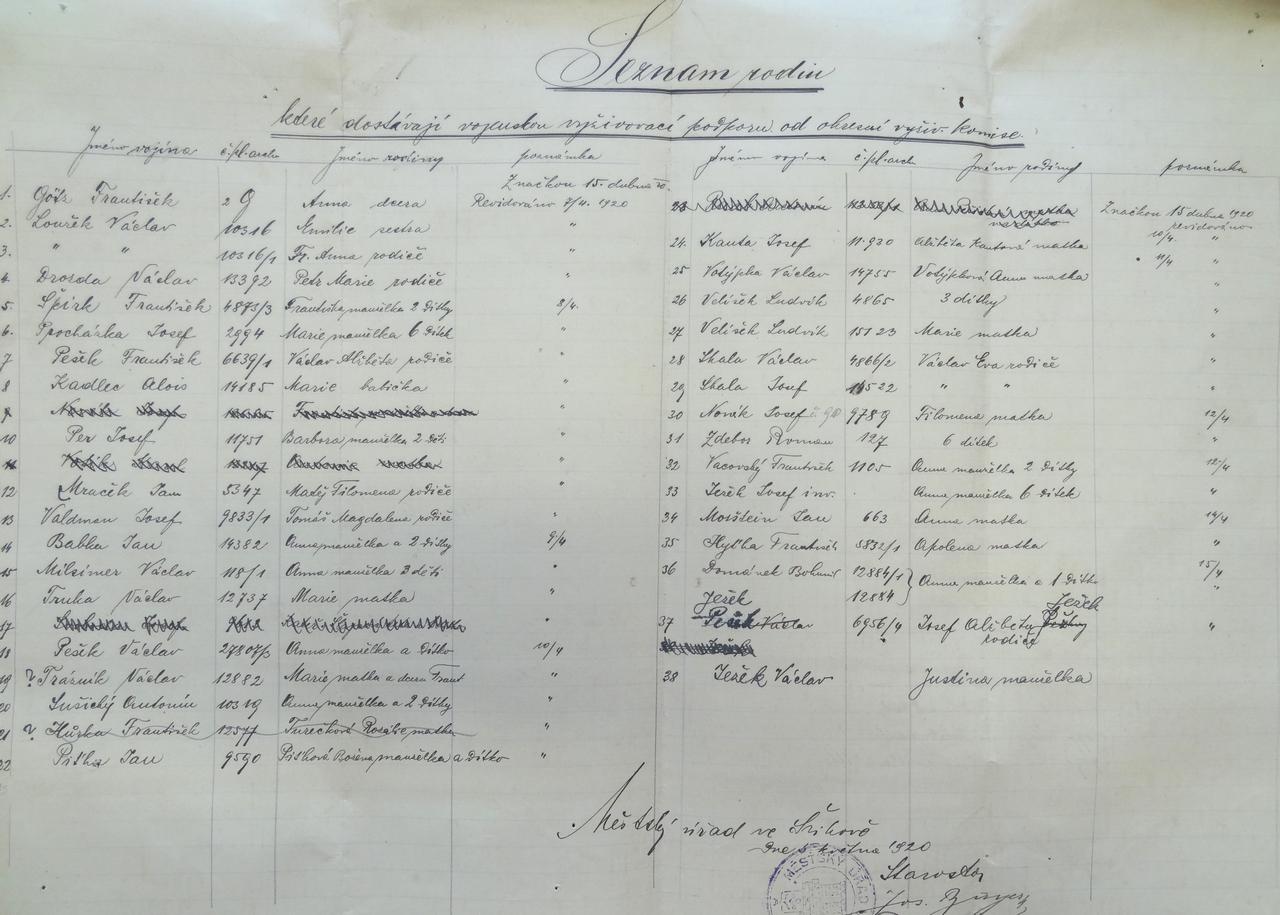 Seznam rodin
které dostávají vojenskou vyživovací podporu od okresní vyživ. komise.
Jméno vojína č. pl. arch Jméno rodiny poznámka
Značkou 15. dubna
1. Götz František 2 9 Anna dcera Revidováno 7/4. 1920
2. Louřek Václav 10316 Emilie sestra "
3. " " 10316/1 Fr. Anna rodiče
4. Drozda Václav 13392 Petr Marie rodiče "
5. Špirk František 4873/3 Františka manželka 2 dítky 8/4.
6. Procházka Josef 2994 Marie manželka 6 dítek "
7 Pešek František 6639/1 Václav Alžběta rodiče "
8 Kadlec Alois 14185 Marie babička "
9 "
10 Per Josef 11751 Barbora manželka 2 děti "
11 matka "
12 Mraček Jan 5347 Matěj Filomena rodiče "
13 Valdman Josef 9833/1 Tomáš Magdalena rodiče "
14 Babka Jan 14382 Anna manželka a 2 dítky 9/4
15 Milsimer Václav 118/1 Anna manželka 3 děti "
16 Truka Václav 12737 Marie matka "
17 "
18 Pešek Václav 27807/3 Anna manželka a dítko 10/4
19 ? Trázník Václav 12882 Marie matka a dcera Frant "
20 Sušický Antonín 10319 Anna manželka a 2 dítky "
21 ? Hůrka František 12577 Turečková Rosalie matka "
22 Piťha Jan 9590 Piťhová Božena manželka a dítko "
Jméno vojína č. pl. arch Jméno rodiny poznámka
23 Značkou 15 dubna 1920
revidováno
24. Kauta Josef 11.920 Alžběta Kautová matka 10/4. "
25 Votýpka Václav 14755 Votýpková Anna matka 11/4 "
26 Velíšek Ludvík 4865 3 dítky "
27 Velíšek Ludvík 15123 Marie matka "
28 Skala Václav 4866/2 Václav Eva rodiče "
29 Skala Josef 14522 " " "
30 Novák Josef č. 90 9789 Filomena matka 12/4
31 Zdebor Roman 127 6 dítek "
32 Vacovský František 1105 Anna manželka 2 dítky 12/4
33 Ježek Josef inv. Anna manželka 6 dítek "
34 Morštein Jan 663 Anna matka 14/4
35 Hyťha František 5832/1 Apolena matka "
36 Dománek Bohumír 12884/1 Anna manželka a 1 dítko 15/4
12884 "
Ježek Ježek
37 Pešek Václav 6956/4 Josef Alžběta rodiče "
38 Ježek Václav Justina manželka
Městský úřad ve
Dne května 1920
Starosta
Jos.
MĚSTSKÝ ÚŘAD